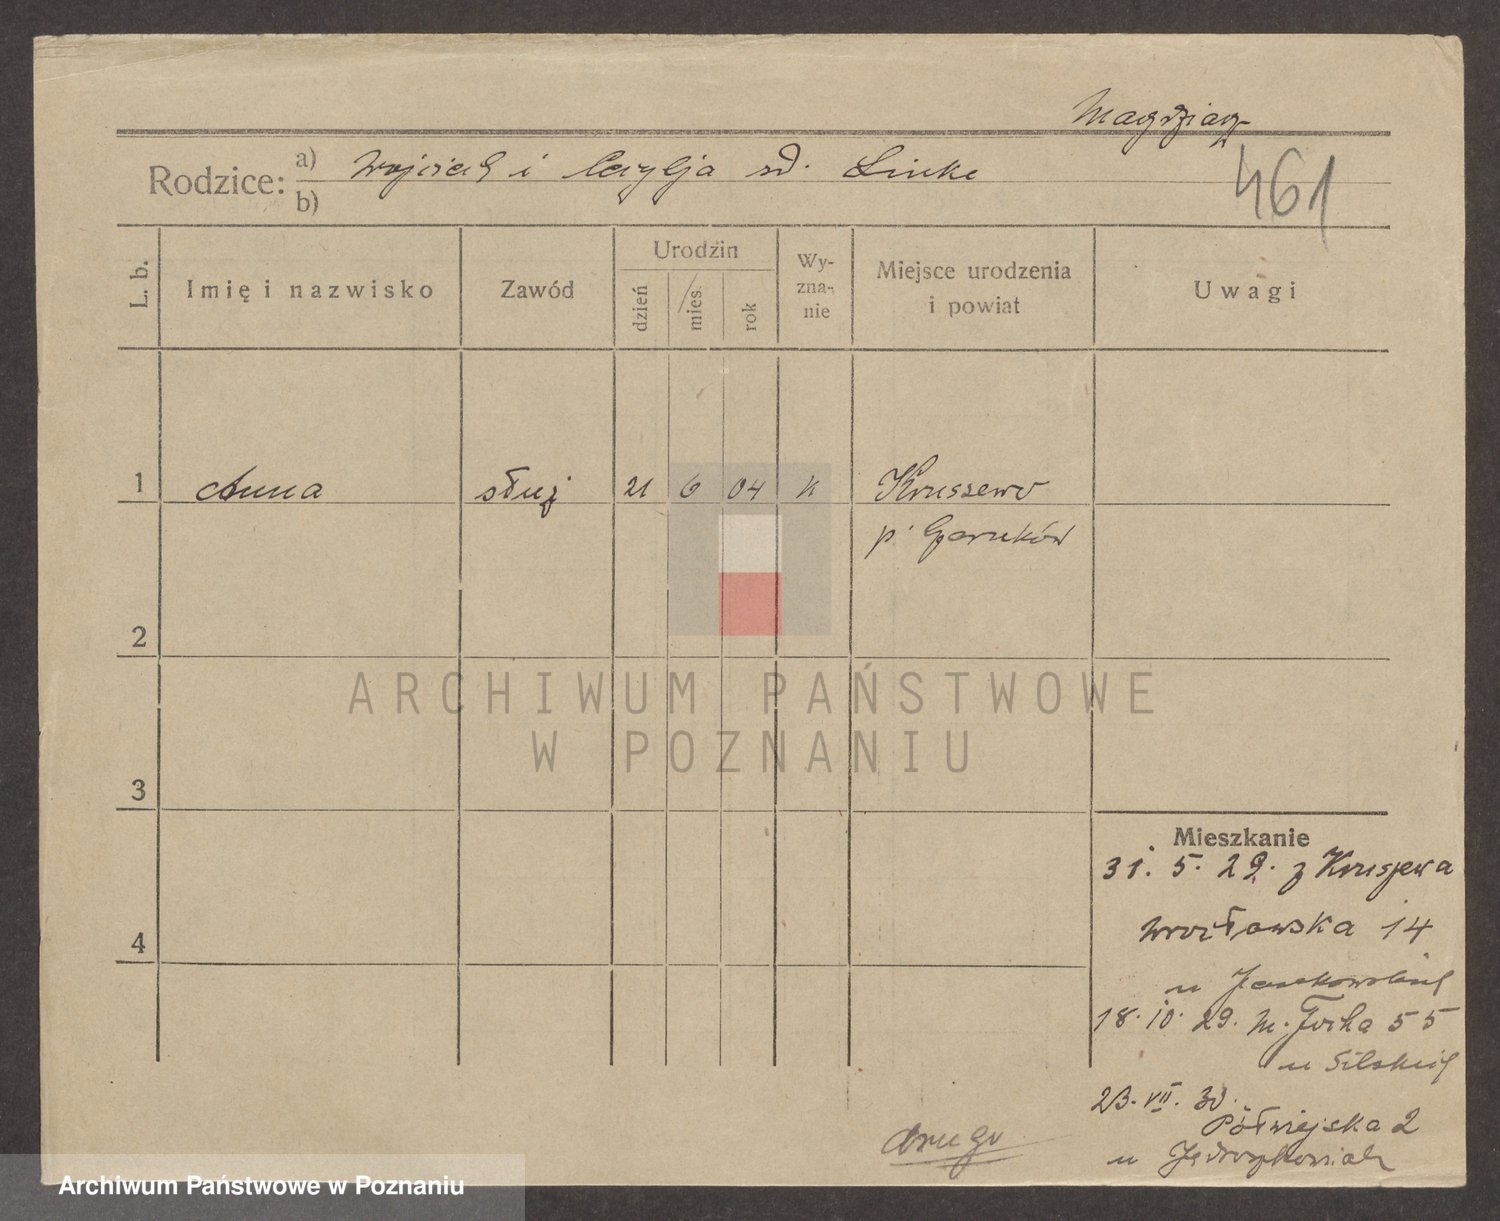 Magdziarz
461
Rodzice: a) Wojciech i Cecylja sd. Linke
b)
L. b. Imię i nazwisko Zawód Urodzin dzień mies. rok Wy-zna-nie Miejsce urodzenia i powiat Uwagi
1 Anna służ 21 6 04 k Kruszewo
p. Czarnków
2
3
4
Mieszkanie
31. 5. 29. z Kruszewa
Wrocławska 14
u
18. 10. 29. M. Focha 55
u
23. VII. 30.
Półwiejska 2
u
drugo
ARCHIWUM PAŃSTWOWE
W POZNANIU
Archiwum Państwowe w Poznaniu